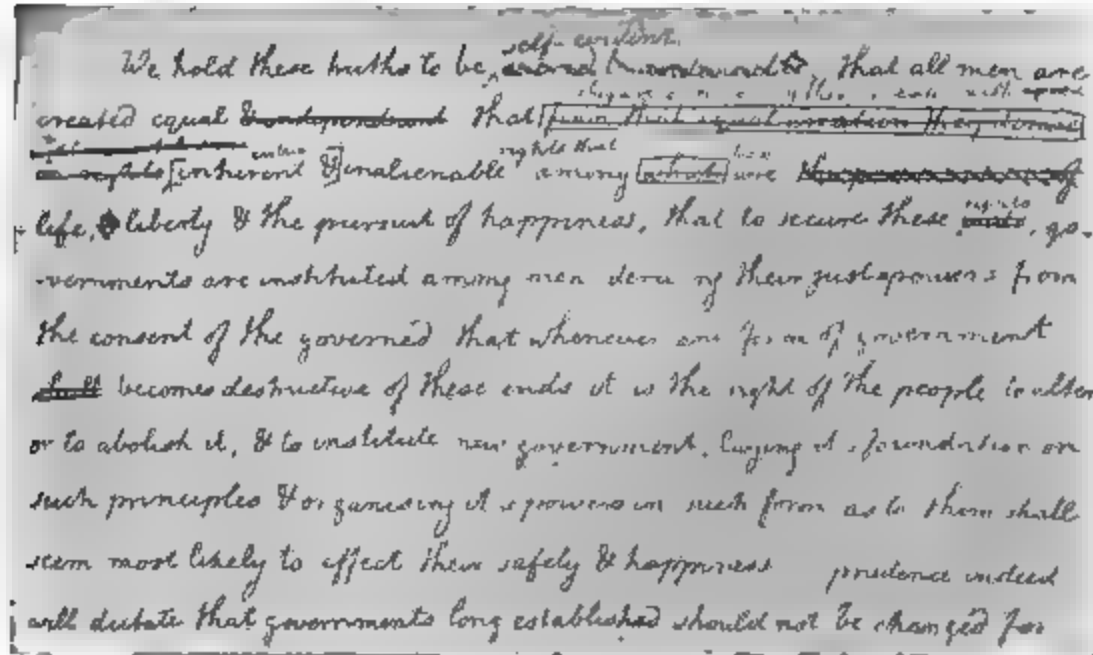 self-evident
We hold these truths to be, sacred & undeniable, that all men are
created equal & independent that from that equal creation they derive
rights that
in rights [inherent &] inalienable among which are
rights
life, & liberty & the pursuit of happiness, that to secure these ends, go-
-vernments are instituted among men deriving their just powers from
the consent of the governed that whenever any form of government
shall becomes destructive of these ends it is the right of the people to alter
or to abolish it, & to institute new government, laying it's foundation on
such principles & organising it's powers in such form as to them shall
seem most likely to effect their safety & happiness prudence indeed
will dictate that governments long established should not be changed for